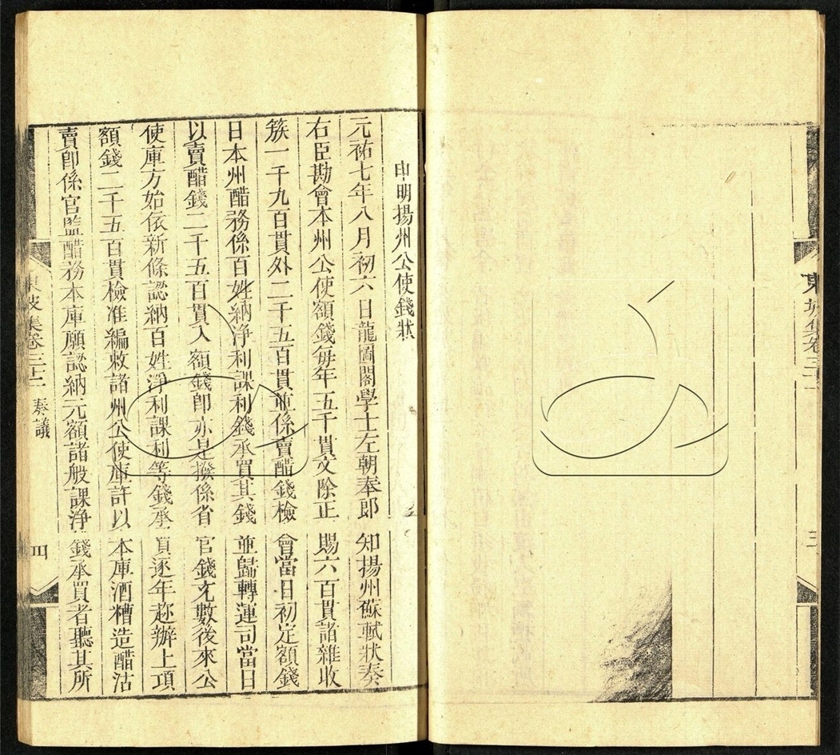 東坡集卷三
三
申明揚州公使錢狀
元祐七年八月初六日龍圖閣學士左朝奉郎知揚州蘇軾狀奏
右臣勘會本州公使額錢每年五千貫文除正賜六百貫諸雜收
簇一千九百貫外二千五百貫並係賣醋錢檢會當日初定額錢
日本州醋務係百姓納淨利課利錢承買其錢並歸轉運司當日
以賣醋錢二千五百貫入額錢卽亦是撥係省官錢充數後來公
使庫方始依新條認納百姓淨利課利等錢承買逐年趂辦上項
額錢二千五百貫檢准編敕諸州公使庫許以本庫酒糟造醋沽
賣卽係官監醋務本庫願認納元額諸般課淨錢承買者聽其所
東坡集卷三十二 奏議
四